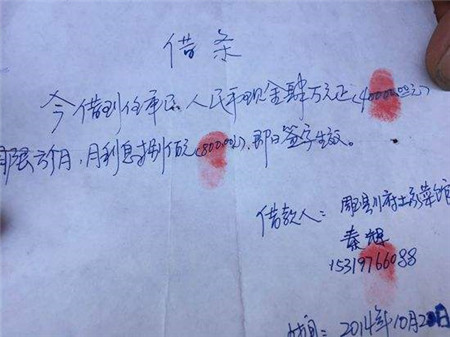 借条
今借到任军民人民币现金肆万元正(40000.00元)
期限六个月,月利息捌佰元(800.00),即日签字生效。
借款人:周县川府土家菜馆
秦辉
15319766088
时间:2014年10月2日